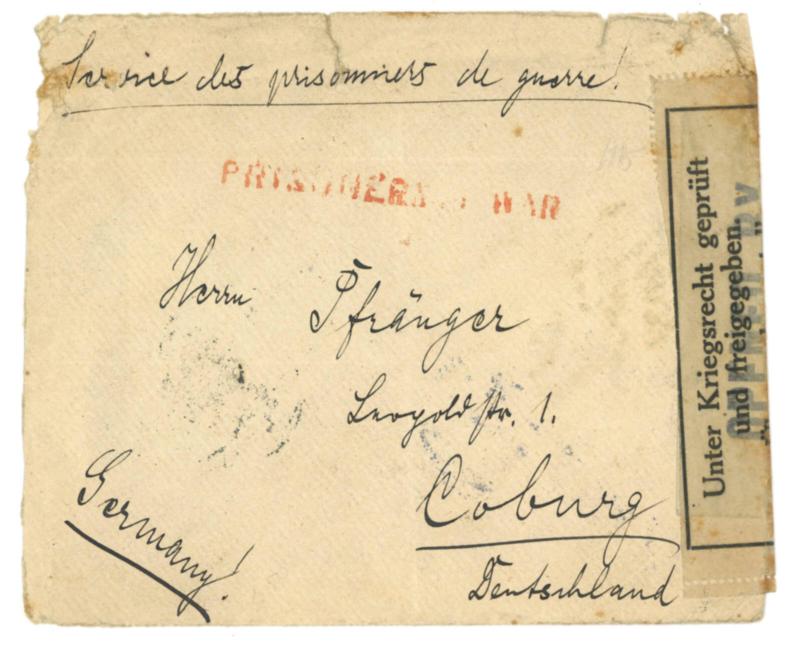 Service des prisonniers de guerre!
PRISONERS WAR
Herrn Pfränger
Leopoldstr. 1.
Coburg
Deutschland
Germany!
Unter Kriegsrecht geprüft
und freigegeben.